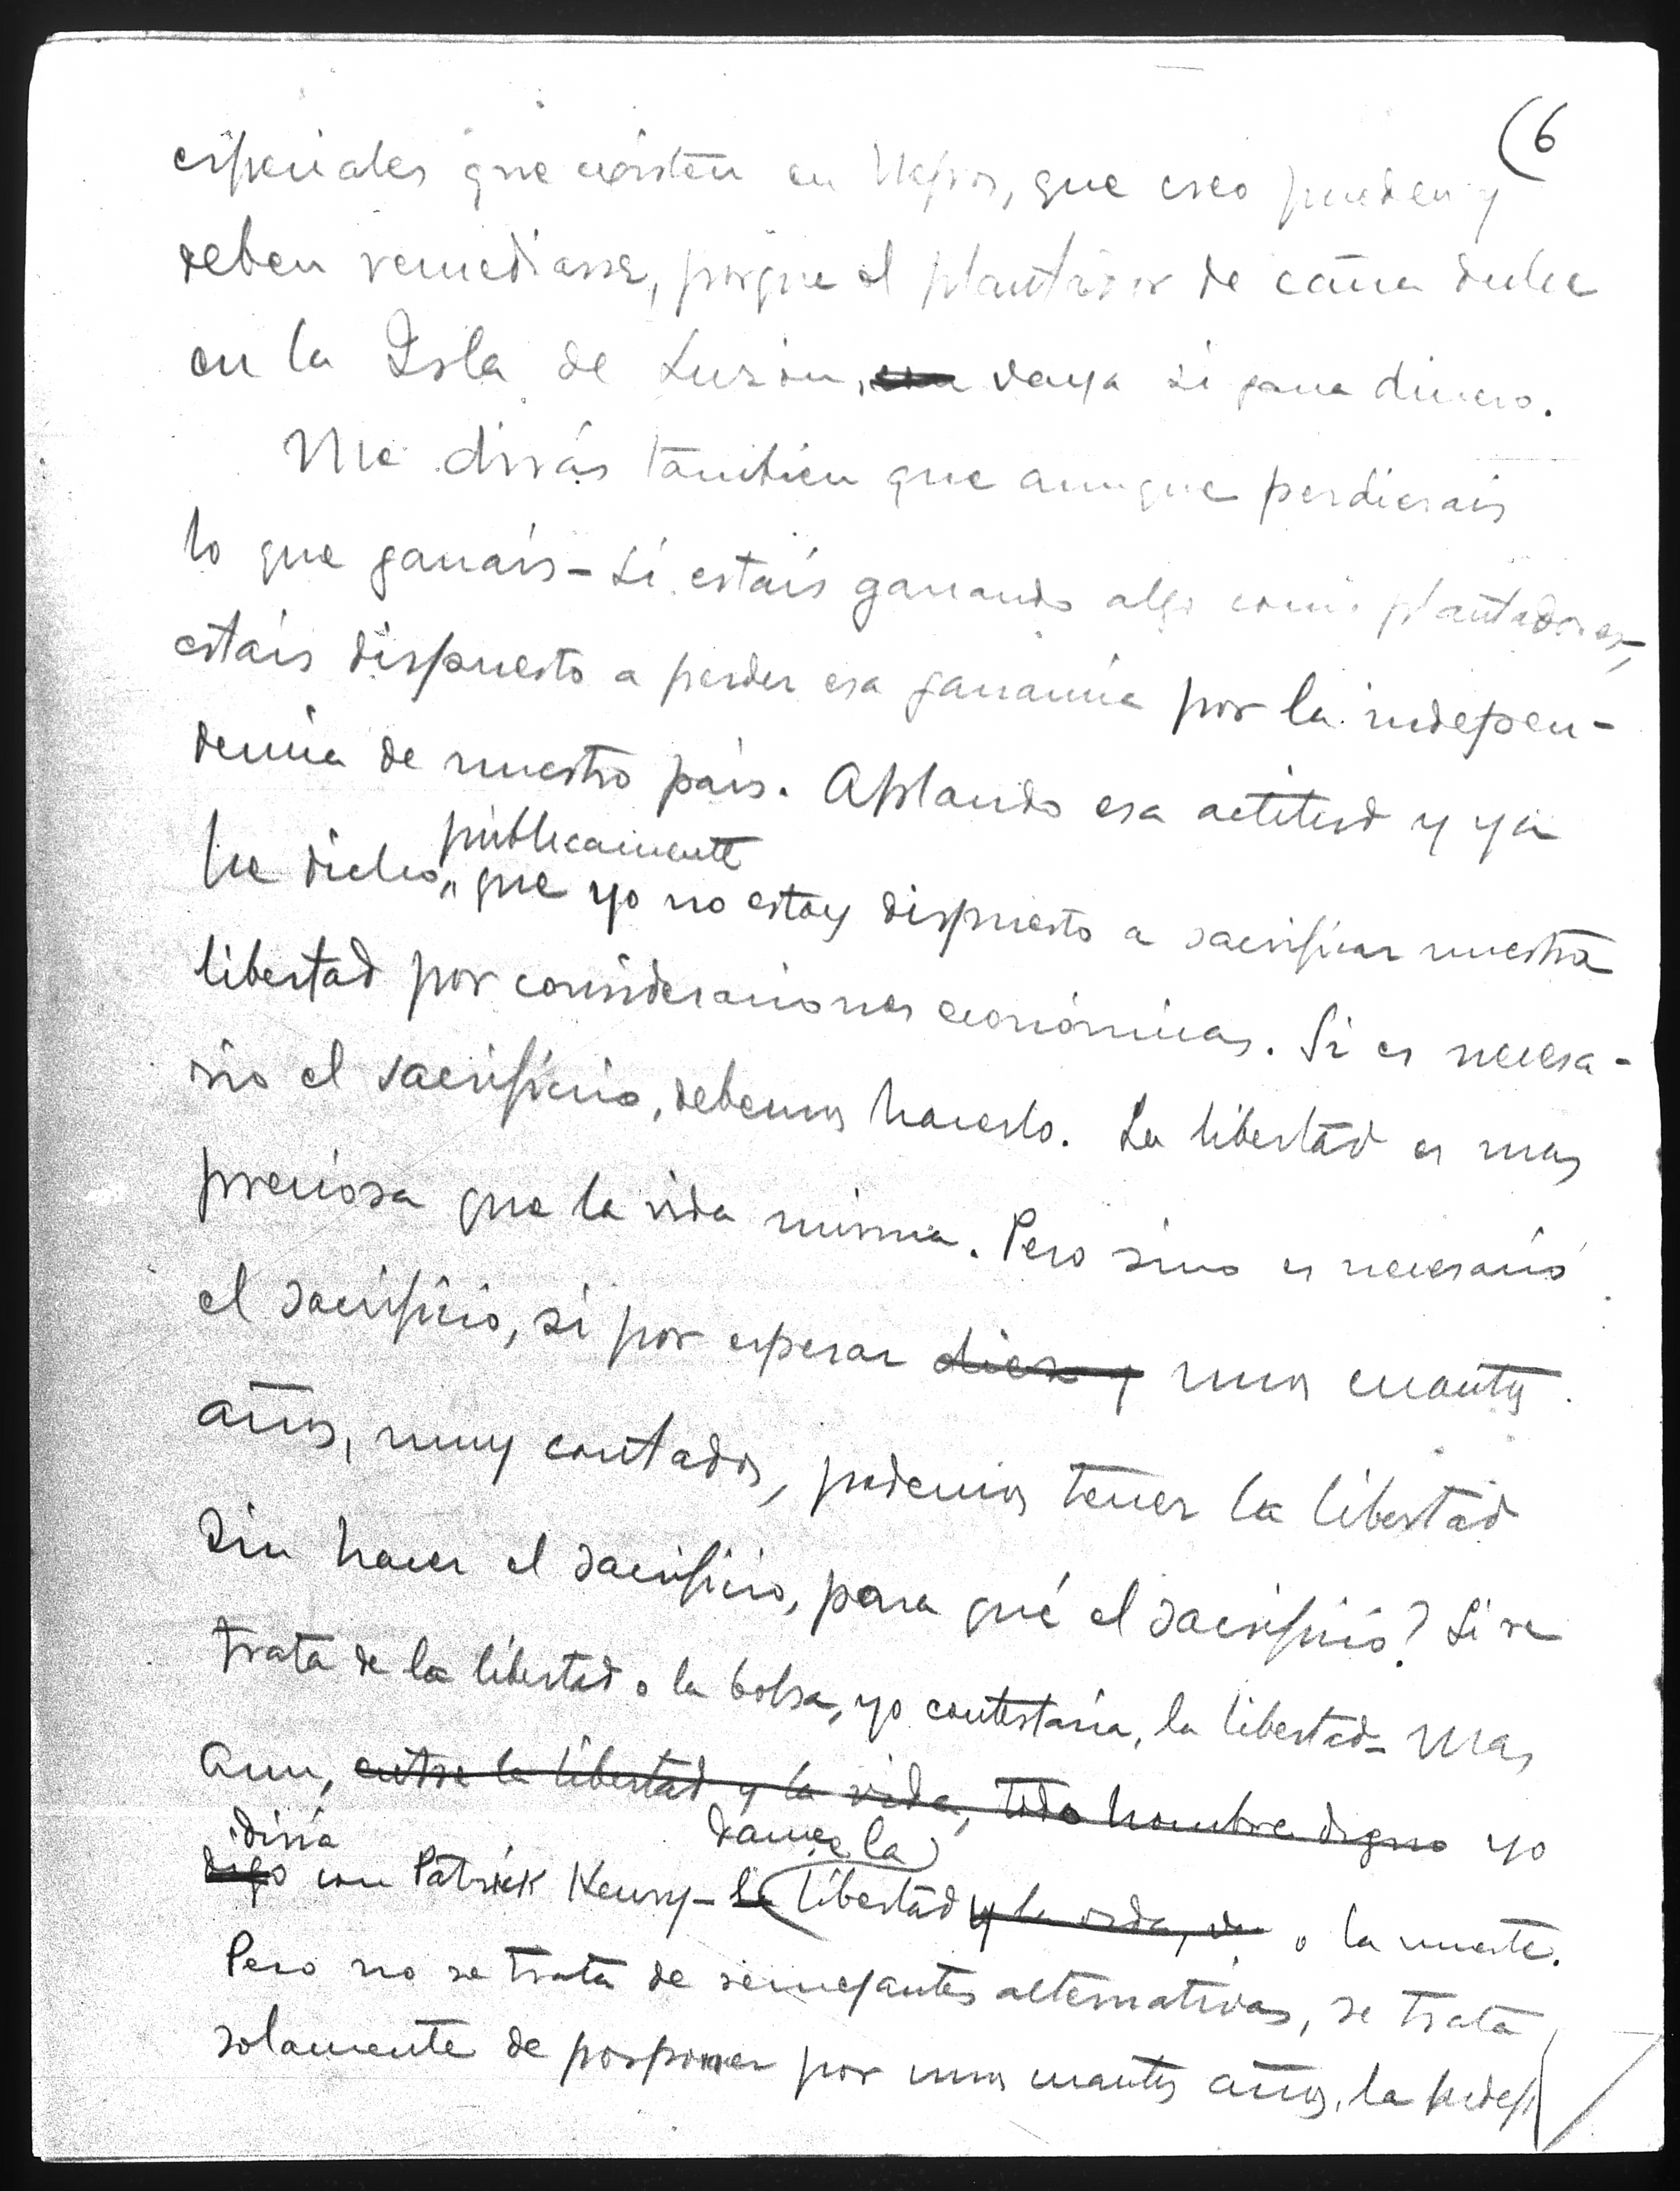 (6
especiales que existen en Negros, que creo pueden y
deben remediarse, porque el plantador de caña dulce
en la Isla de Luzon, vaya si gana dinero.
Me dirás tambien que aunque perdierais
lo que ganais - si estais ganando algo como plantadores,
estais dispuesto a perder esa ganancia por la indepen-
dencia de nuestro pais. Aplaudo esa actitud y ya
publicamente
he dicho, que yo no estoy dispuesto a sacrificar nuestra
libertad por consideraciones económicas. Si es necesa-
rio el sacrificio, debemos hacerlo. La libertad es mas
preciosa que la vida misma. Pero sino es necesario
el sacrificio, si por esperar diez y unos cuantos
años, muy contados, podemos tener la libertad
sin hacer el sacrificio, para qué el sacrificio? Si se
trata de la libertad o la bolsa, yo contestaria, la libertad - Mas
aun, entre la libertad y la vida, todo hombre digno yo
diria dame la
digo con Patrick Henry - la libertad y la vida, o la muerte.
Pero no se trata de semejantes alternativas, se trata
solamente de posponer por unos cuantos años, la indep